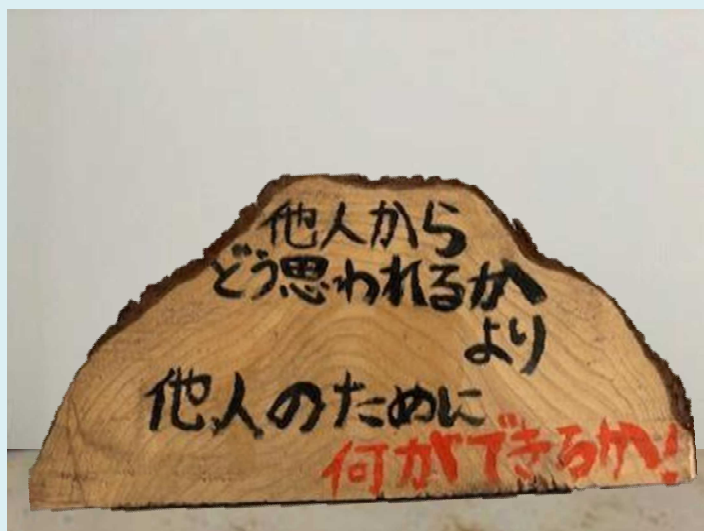 他人から
どう思われるか
より
他人のために
何ができるか!